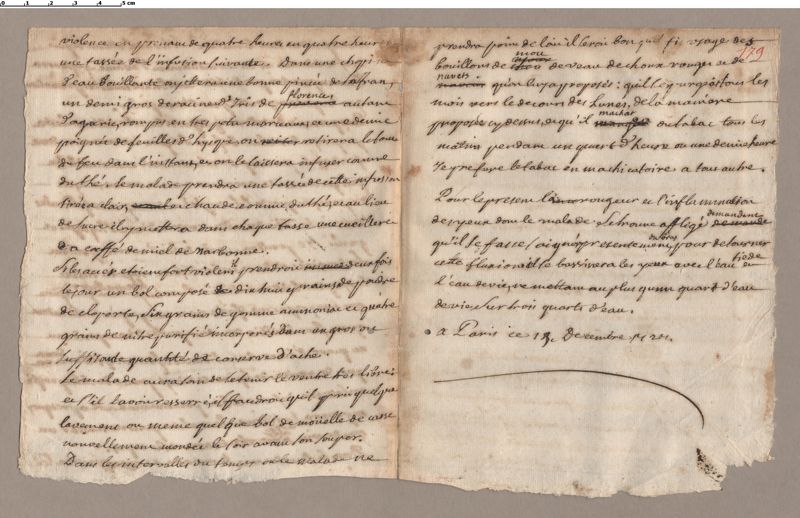 violence en prenant de quatre heures en quatre heures
une tassée de l'infusion suivante. Dans une chopine
d'eau bouillante on jettera une bonne pincée de safran,
un demi gros de racine d'Iris de florence autant
d'agaric rompus en tres petits morceaux, et une demie
poignée de feuilles d'hysope, on retirera le tout
du feu dans l'instant, et on le laissera infuser comme
du thé. le malade prendra une tassée de cette infusion
tirée a clair, chaude comme du thé, et au lieu
de sucre il y mettra dans chaque tasse une cueillerée
a caffé de miel de Narbonne.
si les acces etoient fort violens il prendroit deux fois
le jour un bol composé de dix huit grains de poudre
de cloportes, six grains de gomme ammoniac et quatre
grains de nitre purifié incorporés dans un gros ou
suffisante quantité de conserve d'ache.
le malade aura soin de se tenir le ventre tres libre:
et s'il l'avoit resserré, il faudroit qu'il prit quelque
lavement ou meme quelque bol de moüelle de casse
nouvellement mondée le soir avant son souper.
Dans les intervalles du temps ou le malade ne
179
prendra point de lait il seroit bon qu'il fit usage des
bouillons de mou de veau de choux rouges et de
navets qu'on luy a proposés: qu'il se purgeat tous les
mois vers le decours des Lunes, de la maniere
proposée cy dessus, et qu'il machat du tabac tous les
matins pendant un quart d'heure ou une demie heure
Je prefere le tabac en machicatoire a tout autre.
Pour le present la rougeur et l'inflammation
des yeux dont le malade se trouve affligé demandent
qu'il se fasse saigner presentement du bras pour detourner
cette fluxion. il se bassinera les yeux avec l'eau tiede et
l'eau de vie, ne mettant au plus qu'un quart d'eau
de vie sur trois quarts d'eau.
a Paris ce 13. Decembre 1721.
0 1 2 3 4 5 cm